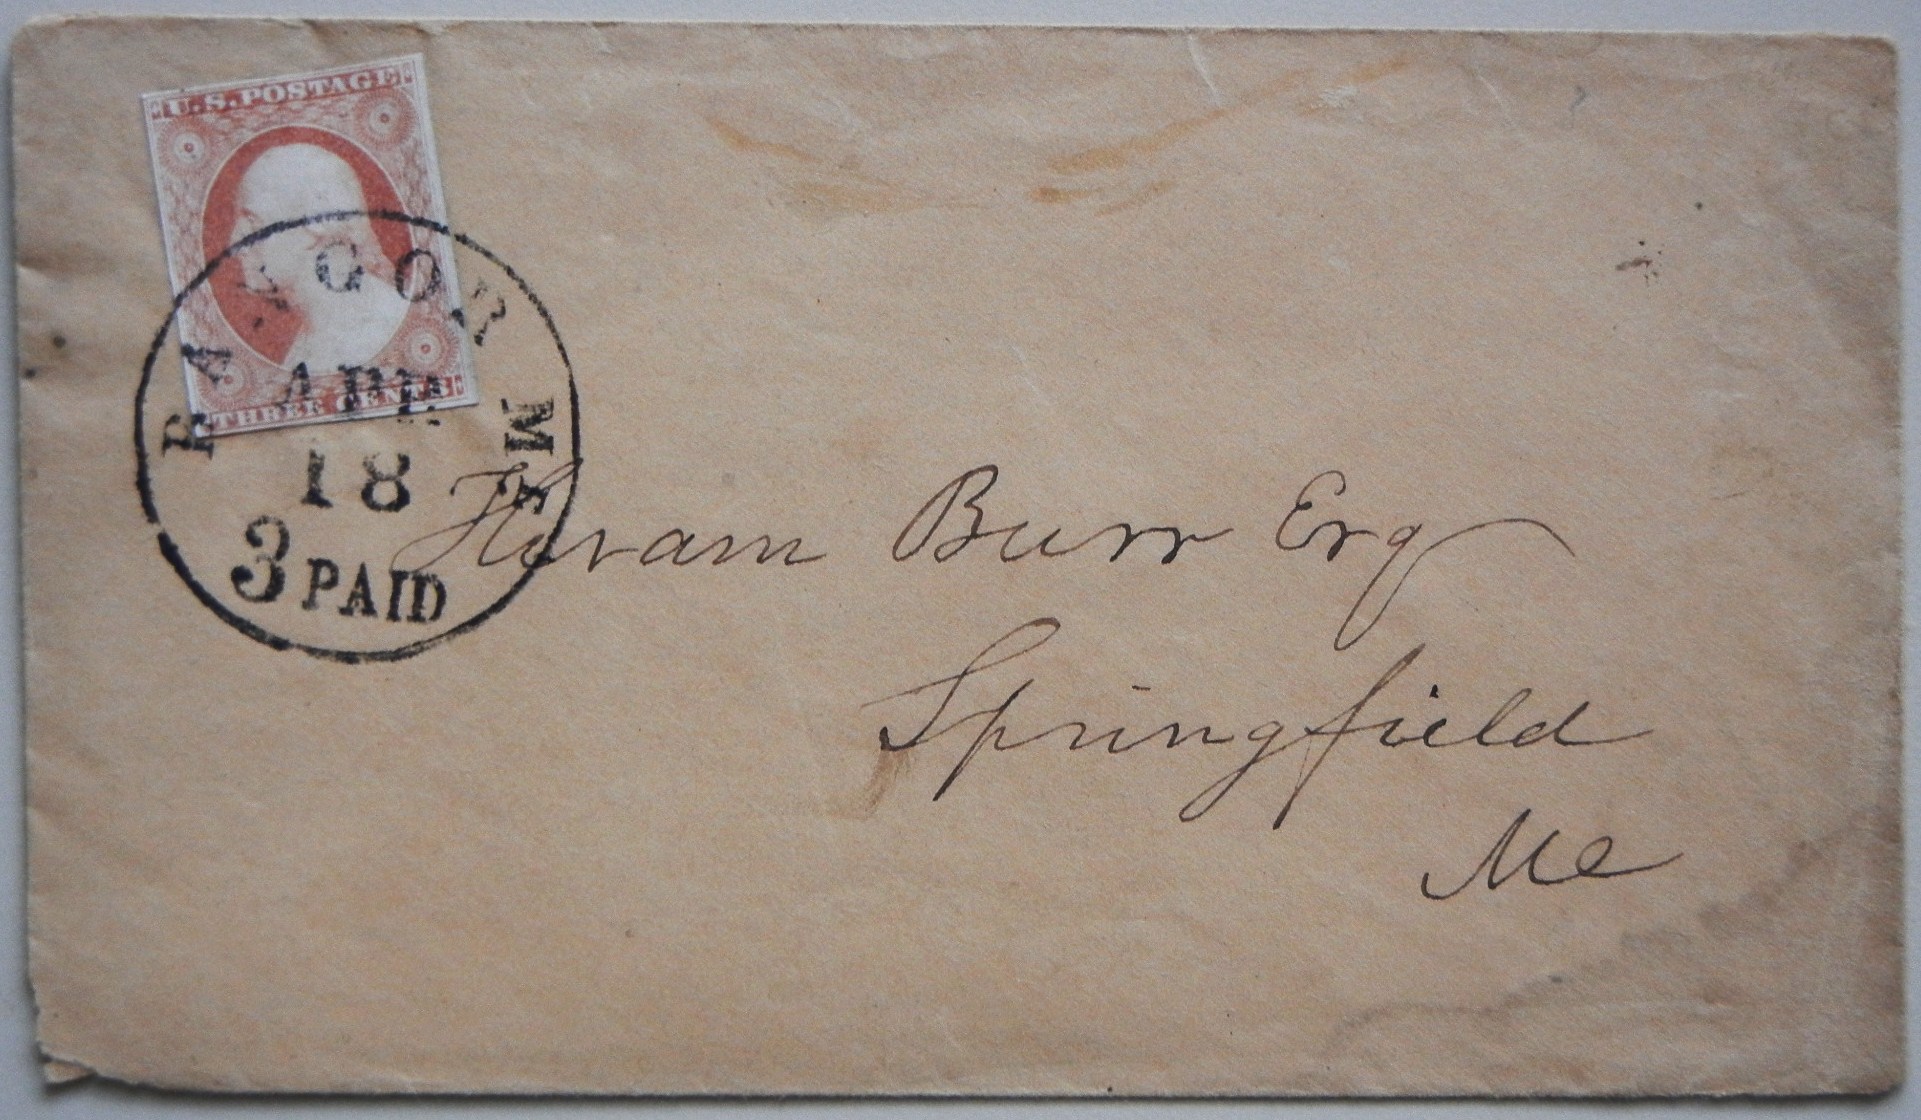 U.S. POSTAGE
THREE CENTS
BANGOR Me.
APR
18
3 PAID
Hiram Burr Esq
Springfield
Me